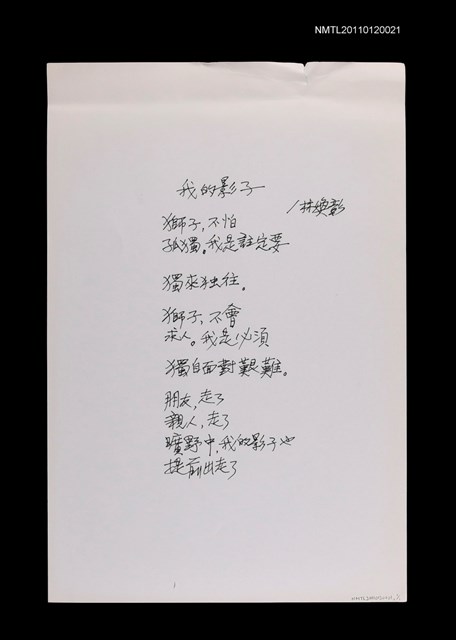 NMTL20110120021
我的影子
/林煥彰
獅子，不怕
孤獨。我是註定要
獨來独往。
獅子，不會
求人。我是必須
獨自面對艱難。
朋友，走了
親人，走了
曠野中，我的影子也
提前出走了